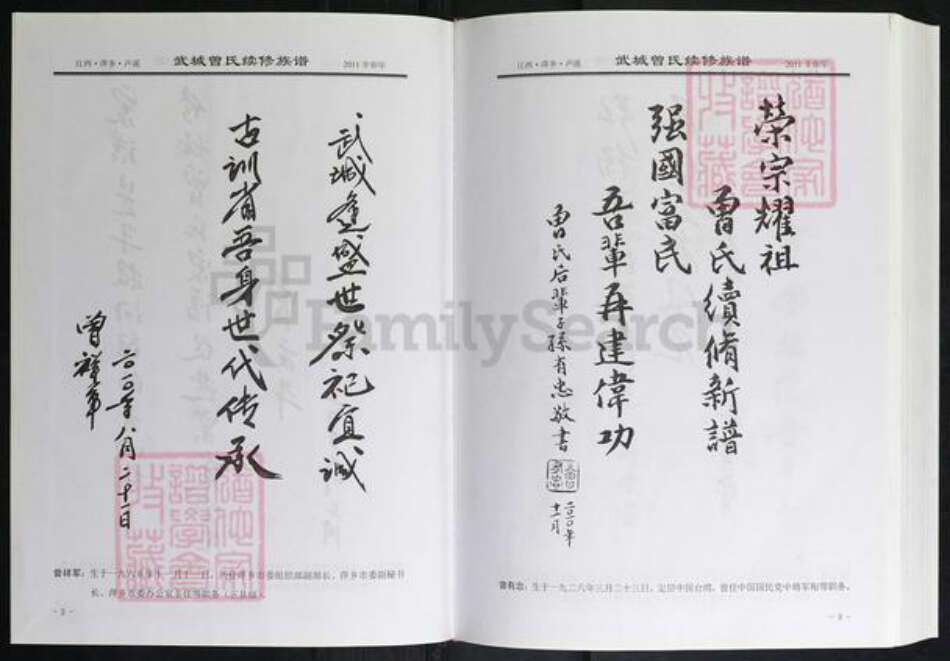 江西·萍乡·卢溪 武城曾氏续修族谱 2011年春年
武城逢盛世祭祀宜诚
古训省吾身世代传承
二〇一〇年八月二十一日
曾祥军
曾祥军：生于一九六 年 月十一日，萍乡市委组织部副部长、萍乡市委副秘书
长、萍乡市委办公室主任等职务
- 2 -
江西·萍乡·卢溪 武城曾氏续修族谱 2011年春年
荣宗耀祖
曾氏續脩新譜
强國富民
吾輩再建偉功
曾氏后輩子孫有忠敬書
二〇一〇年
十一月
曾有忠：生于一九二六年三月二十三日，定居中国台湾，曾任中国国民党中将军衔等职务。
- 3 -
酒仙家譜學會收藏
FamilySearch